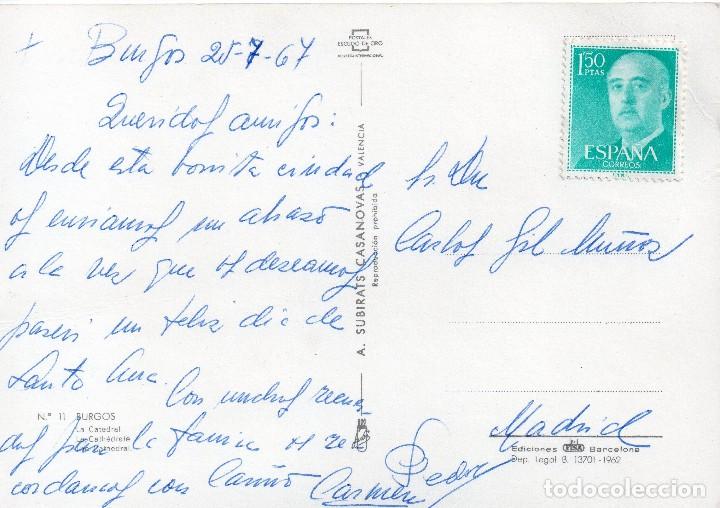 + Burgos 25-7-67
Queridos amigos:
Desde esta bonita ciudad
os enviamos un abrazo
a la vez que os deseamos
paseis un feliz dia de
Santa Ana. Con muchos recuer-
dos para la familia os re
cordamos con cariño Carmen Pedro
Nº 11 BURGOS
La Catedral
La Cathédrale
Cathedral
POSTALES
ESCUDO DE ORO
A. SUBIRATS CASANOVAS - VALENCIA
Reproducción prohibida
1'50
PTAS
ESPAÑA
CORREOS
Sr. Don
Carlos Gil Muñoz
Madrid
Ediciones FISA Barcelona
Dep. Legal B. 13701-1962
todocoleccion